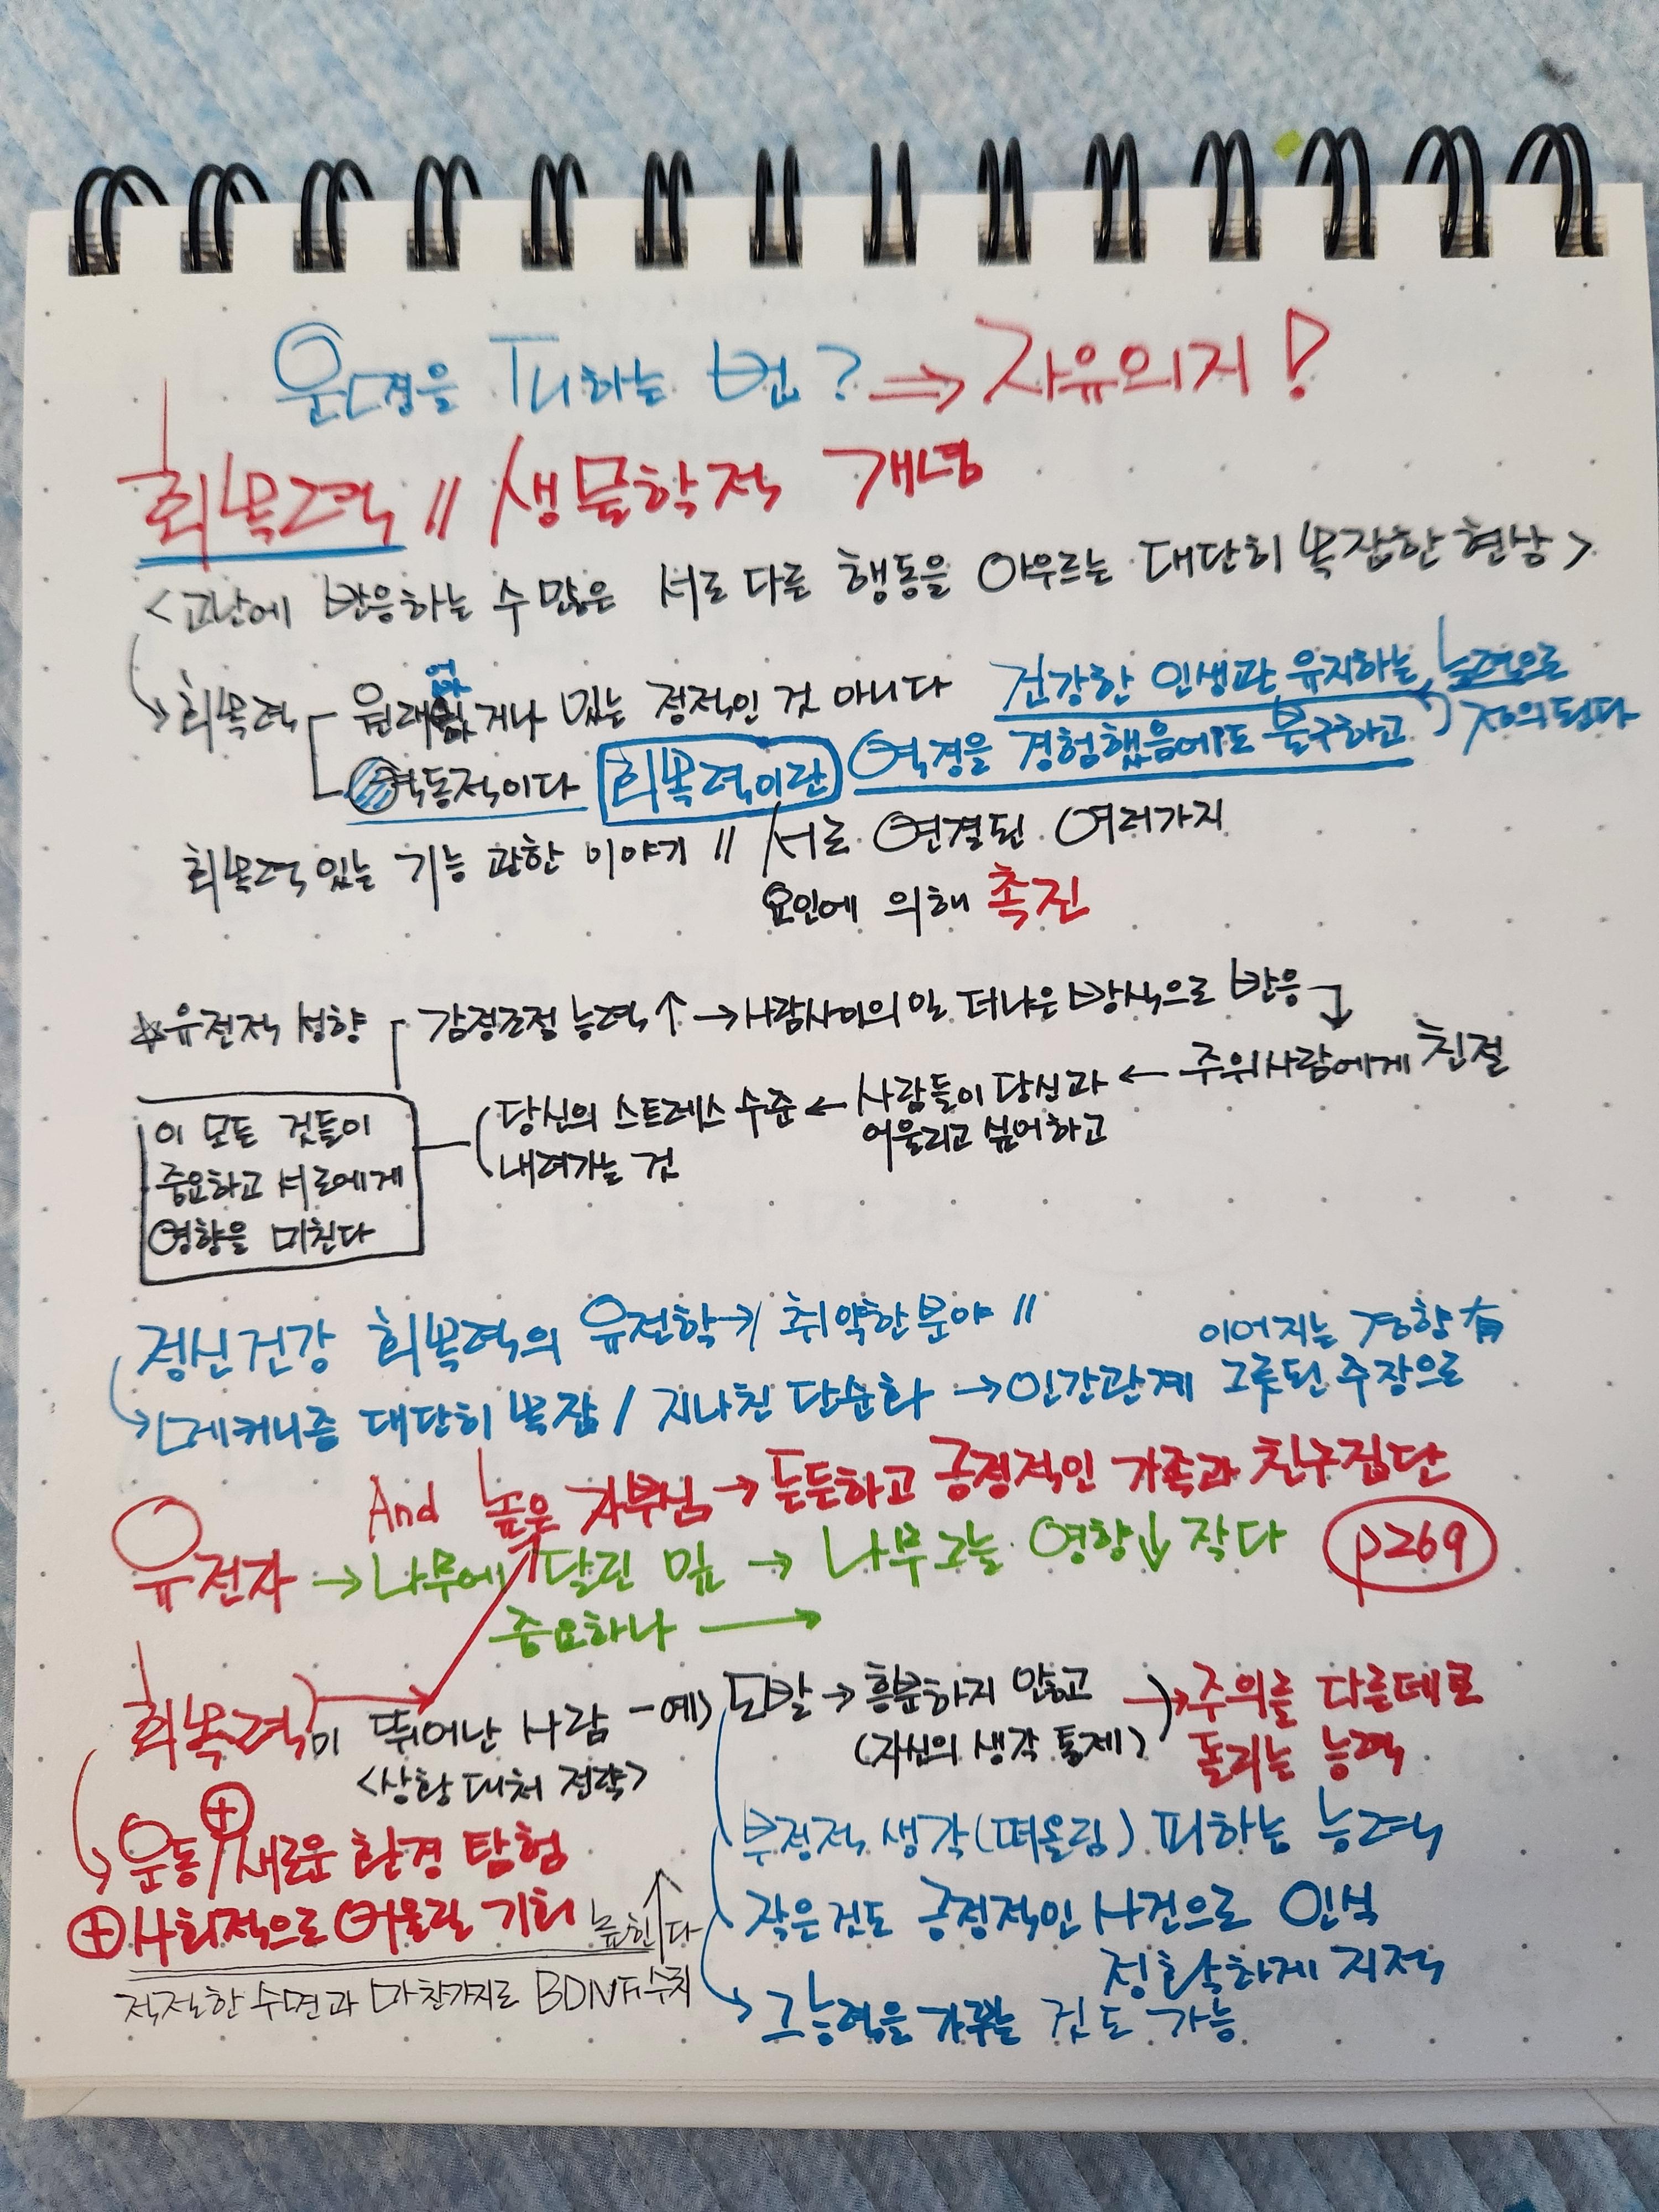 운명을 피하는 법? ⇒ 자유의지!
회복력 // 생물학적 개념
<고난에 반응하는 수많은 서로 다른 행동을 아우르는 대단히 복잡한 현상>
회복력 원래 없거나 있는 정적인 것 아니다 건강한 인생관 유지하는 능력으로
역동적이다 회복력이란 역경을 경험했음에도 불구하고 정의된다
회복력 있는 기능 관한 이야기 // 서로 연결된 여러가지
요인에 의해 촉진
☆유전적 성향 감정조절 능력↑ → 사람사이의 일 더 나은 방식으로 반응
당신의 스트레스 수준 ← 사람들이 당신과 ← 주위사람에게 친절
어울리고 싶어하고
내려가는 것
이 모든 것들이
중요하고 서로에게
영향을 미친다
정신건강 회복력의 유전학→ 취약한 분야 // 이어지는 경향 有
메커니즘 대단히 복잡 / 지나친 단순화 → 인간관계 그릇된 주장으로
And 높은 자부심 → 든든하고 긍정적인 가족과 친구집단
유전자 → 나무에 달린 잎 → 나무그늘 영향↓ 작다 p269
중요하나 →
회복력이 뛰어난 사람 -예) 도발 → 흥분하지 않고 → 주의를 다른데로
(자신의 생각 통제) 돌리는 능력
<상황 대처 전략>
운동 ⊕ 새로운 환경 탐험
부정적 생각(떠올림) 피하는 능력
⊕ 사회적으로 어울릴 기회 높인다
작은것도 긍정적인 사건으로 인식
정확하게 지적
적절한 수면과 마찬가지로 BDNF수치
그 능력을 가꾸는 것도 가능